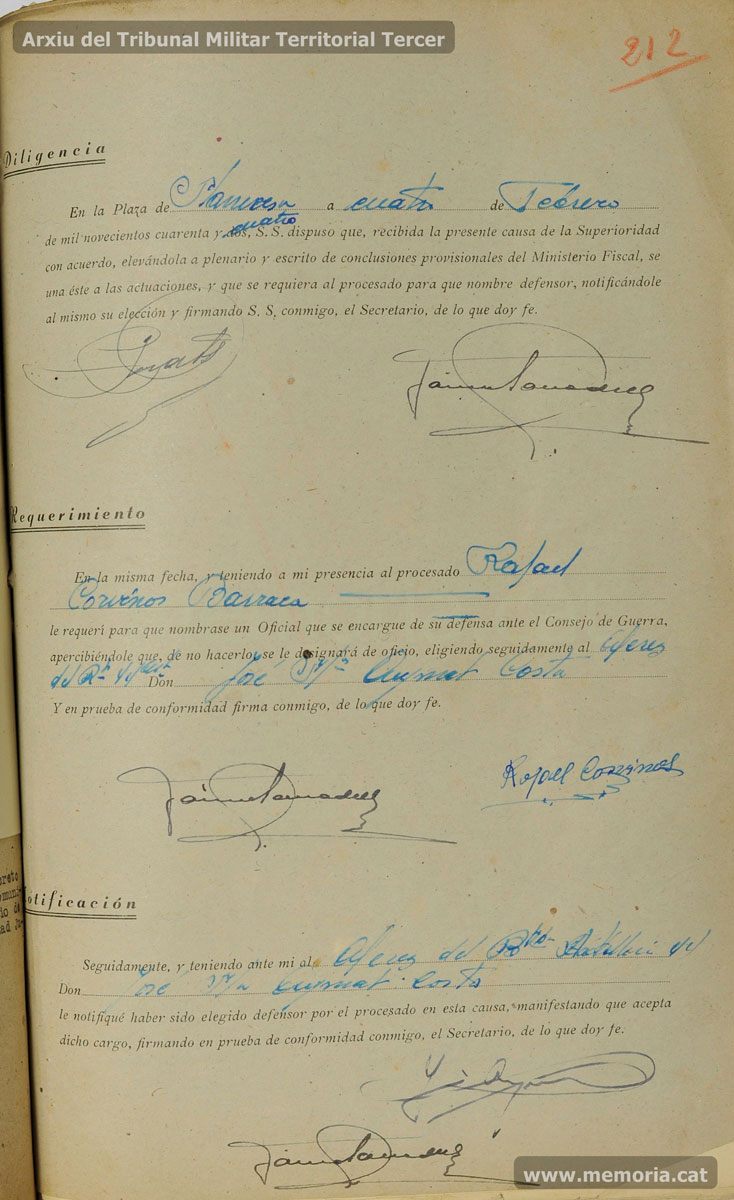 Arxiu del Tribunal Militar Territorial Tercer
212
Diligencia
En la Plaza de Manresa a cuatro de Febrero
cuatro
de mil novecientos cuarenta y dos, S. S. dispuso que, recibida la presente causa de la Superioridad
con acuerdo, elevándola a plenario y escrito de conclusiones provisionales del Ministerio Fiscal, se
una éste a las actuaciones, y que se requiera al procesado para que nombre defensor, notificándole
al mismo su elección y firmando S. S. conmigo, el Secretario, de lo que doy fe.
Requerimiento
En la misma fecha, y teniendo a mi presencia al procesado Rafael
Corvinos Barraca
le requerí para que nombrase un Oficial que se encargue de su defensa ante el Consejo de Guerra,
apercibiéndole que, de no hacerlo, se le designará de oficio, eligiendo seguidamente al Alferez
del Don José Mª Aymat Costa
Y en prueba de conformidad firma conmigo, de lo que doy fe.
Rafael Corvinos
Notificación
Seguidamente, y teniendo ante mi al Alferez del Batallón
Don José Mª Aymat Costa
le notifiqué haber sido elegido defensor por el procesado en esta causa, manifestando que acepta
dicho cargo, firmando en prueba de conformidad conmigo, el Secretario, de lo que doy fe.
www.memoria.cat